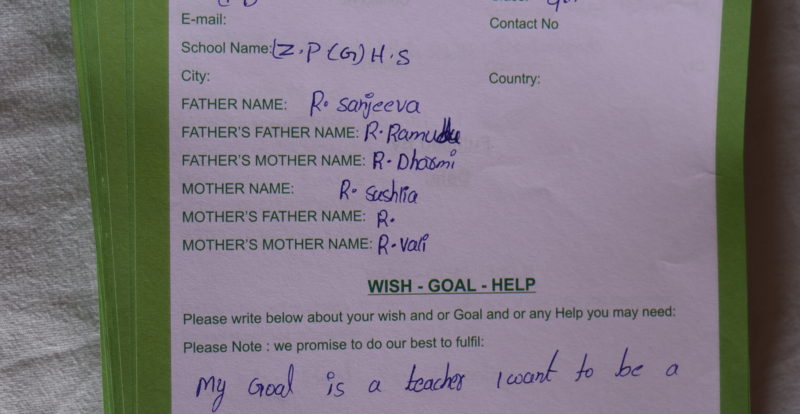 E-mail: Contact No
School Name: Z.P (G) H.S
City: Country:
FATHER NAME: R. Sanjeeva
FATHER'S FATHER NAME: R.
FATHER'S MOTHER NAME: R.
MOTHER NAME: R.
MOTHER'S FATHER NAME: R.
MOTHER'S MOTHER NAME: R. Vali
WISH - GOAL - HELP
Please write below about your wish and or Goal and or any Help you may need:
Please Note : we promise to do our best to fulfil:
My Goal is a teacher I want to be a